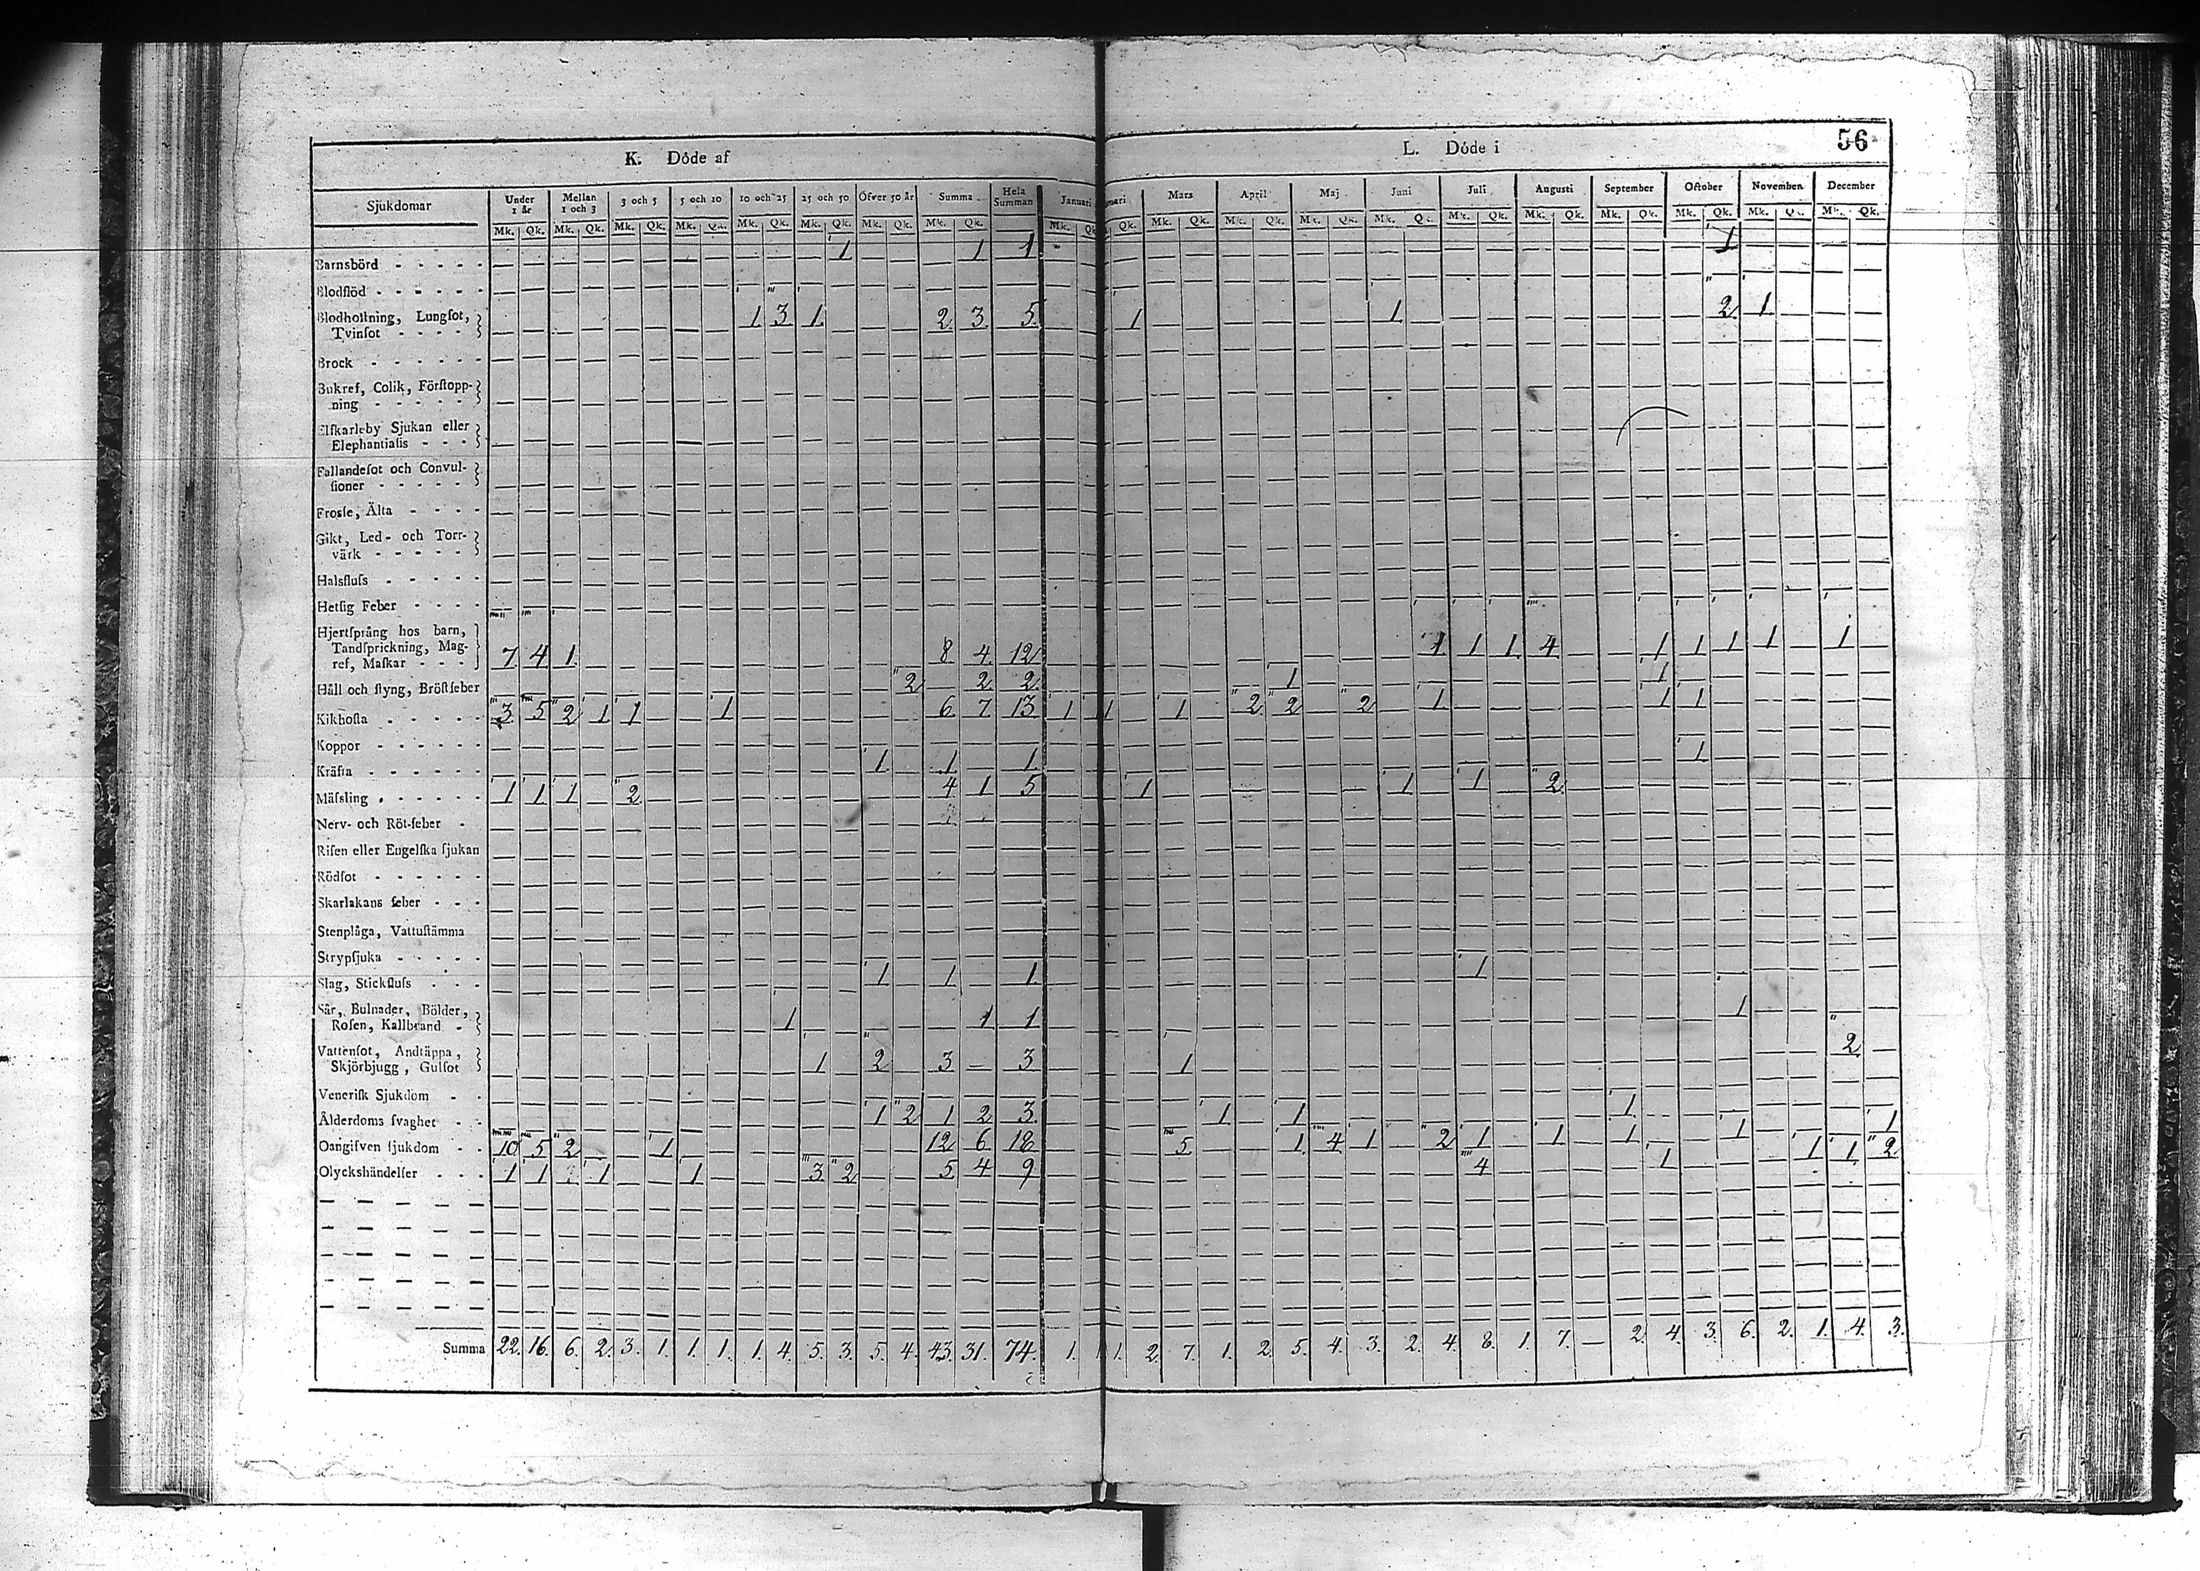 K. Döde af
L. Döde i
56
Sjukdomar Under 1 år Mellan 1 och 3 3 och 5 5 och 10 10 och 25 25 och 50 Öfver 50 år Summa Hela Summan Januari Mars April Maj Juni Juli Augusti September October November December
Mk. Qk. Mk. Qk. Mk. Qk. Mk. Qk. Mk. Qk. Mk. Qk. Mk. Qk. Mk. Qk. Mk. Qk. Mk. Qk. Mk. Qk. Mk. Qk. Mk. Qk. Mk. Qk. Mk. Qk. Mk. Qk. Mk. Qk. Mk. Qk. Mk. Qk.
Barnsbörd - - - - - 1 1 1 1
Blodflöd - - - - - -
Blodhostning, Lungsot,
Tvinsot - - - 1 3 1 2 3 5 1 1 2 1
Brock - - - - - -
Bukref, Colik, Förstopp-
ning - - - - -
Elskarleby Sjukan eller
Elephantiasis - - -
Fallandesot och Convul-
sioner - - - - -
Frosse, Älta - - - -
Gikt, Led- och Torr-
värk - - - - -
Halsfluss - - - - -
Hetsig Feber - - - -
Hjertsprång hos barn,
Tandsprickning, Mag-
ref, Maskar - - - 7 4 1 8 4 12 1 1 1 4 1 1 1 1 1
Håll och styng, Bröstfeber 2 2 2 1 1
Kikhosta - - - - - 3 5 2 1 1 1 6 7 13 1 1 1 2 2 2 1 1 1
Koppor - - - - - -
Kräfta - - - - - - 1 1 1 1
Mässling - - - - - 1 1 1 2 4 1 5 1 1 1 2
Nerv- och Röt-feber -
Risen eller Engelska sjukan
Rödsot - - - - - -
Skarlakans feber - - -
Stenplåga, Vattustämma
Strypsjuka - - - - -
Slag, Stickfluss - - - 1 1 1 1
Sår, Bulnader, Bölder,
Rosen, Kallbrand - 1 1 1 1
Vattensot, Andtäppa,
Skjörbjugg, Gulsot 1 2 3 3 1 2
Venerisk Sjukdom - -
Ålderdoms svaghet - - 1 2 1 2 3 1 1 1
Oangifven sjukdom - - 10 5 2 1 12 6 18 5 1 4 1 2 1 1 1 1 1 1 2
Olyckshändelser - - - 1 1 1 1 3 2 5 4 9 4 1
Summa 22. 16. 6. 2. 3. 1. 1. 1. 1. 4. 5. 3. 5. 4. 43. 31. 74. 1. 1. 2. 7. 1. 2. 5. 4. 3. 2. 4. 8. 1. 7. — 2. 4. 3. 6. 2. 1. 4. 3.